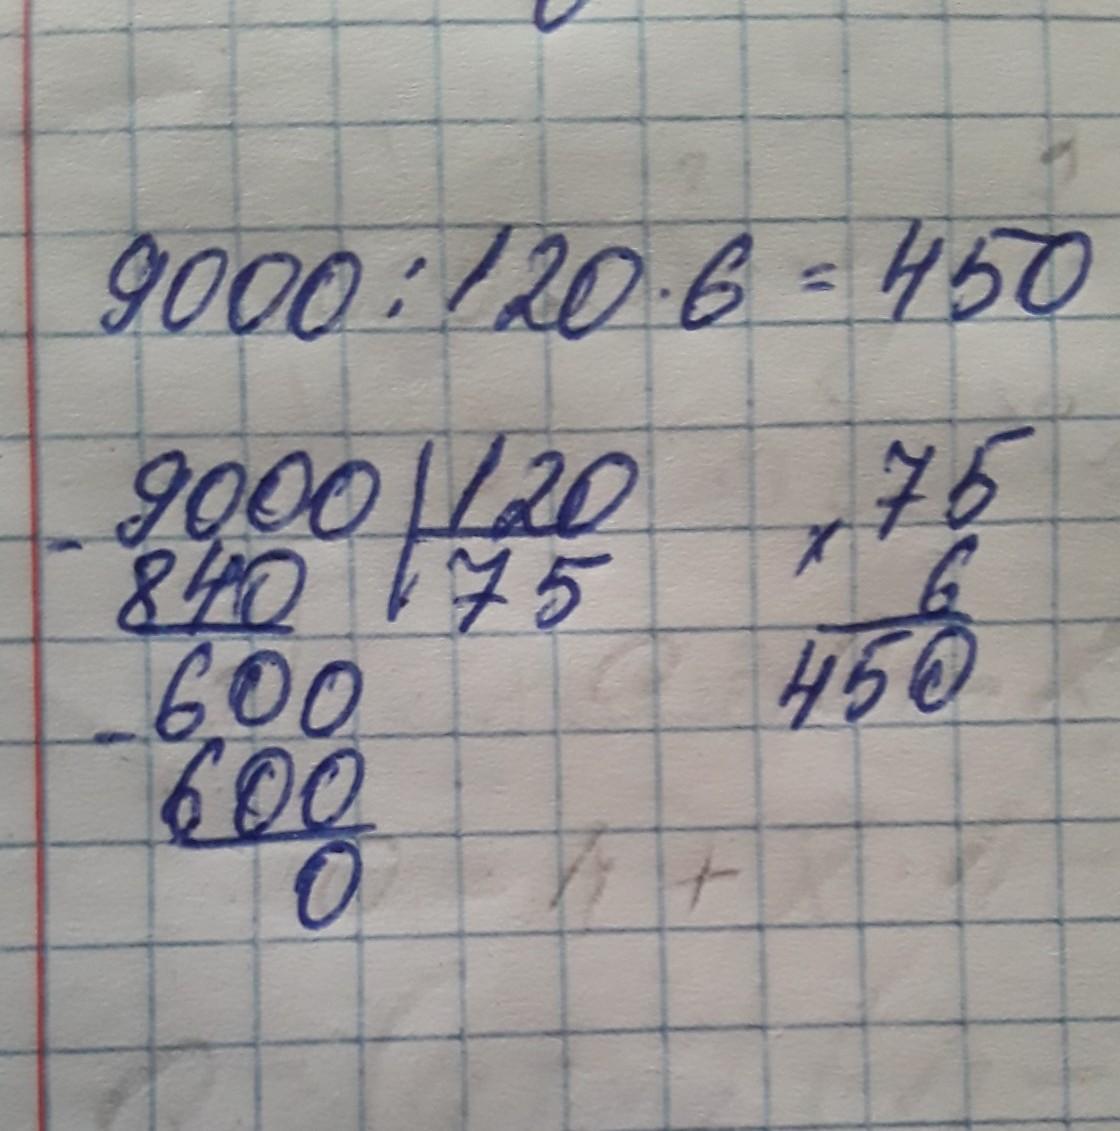 9000 : 120 · 6 = 450
- 9000 | 120
840 | 75
- 600
600
0
× 75
6
450